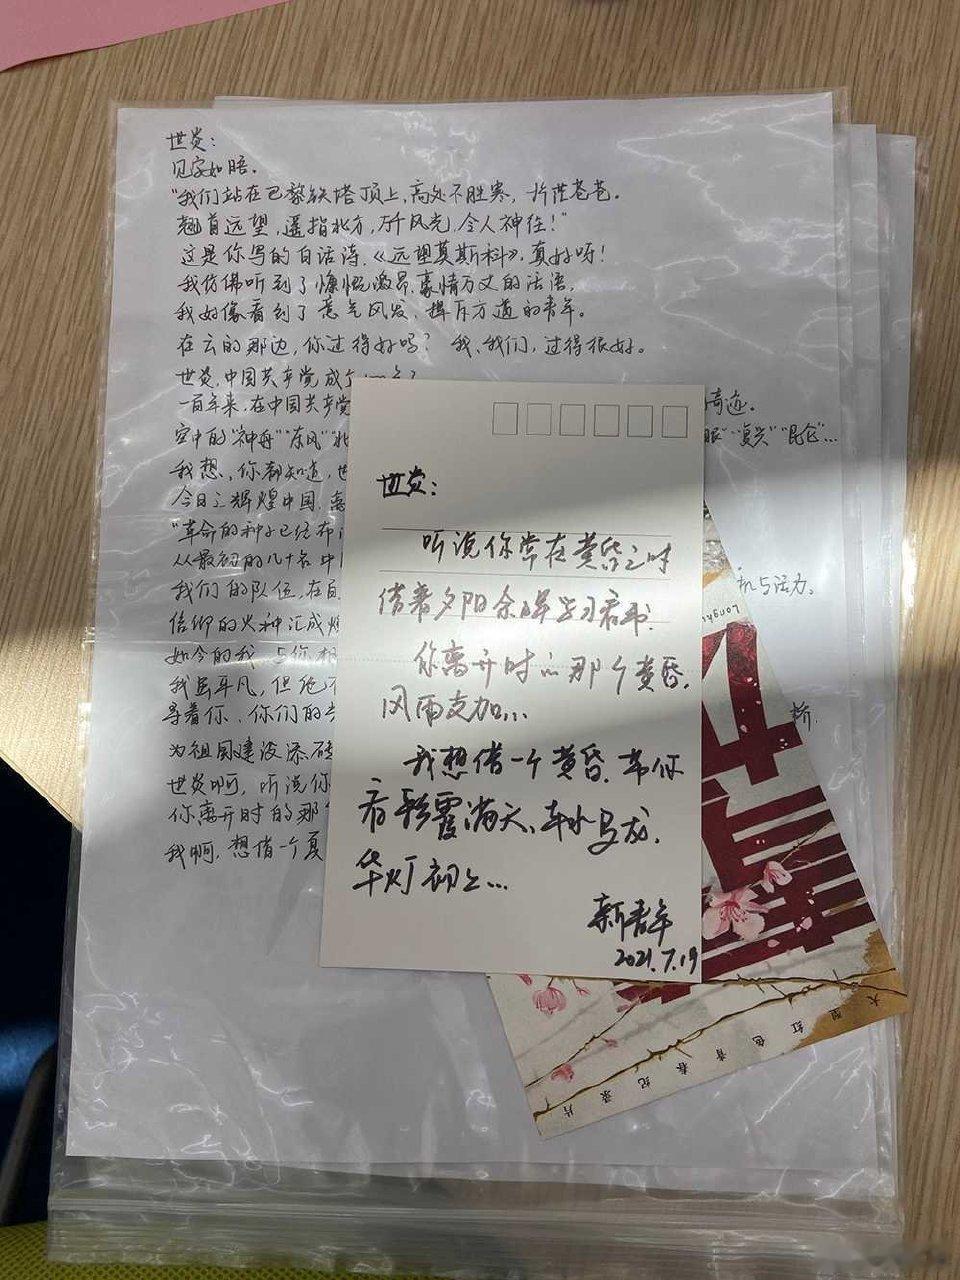 世炎：
见字如晤。
“我们站在巴黎铁塔顶上，高处不胜寒，片茫苍苍。
翘首远望，遥指北方，万千风光，令人神往！”
这是你写的白话诗，《远望莫斯科》，真好呀！
我仿佛听到了慷慨激昂、豪情万丈的话语，
我好像看到了意气风发、挥斥方遒的青年。
在云的那边，你过得好吗？我、我们，过得很好。
世炎，中国共产党成立
一百年来，在中国共产党 奇迹。
空中的“神舟”“东风”“北 眼”“复兴”“昆仑”…
我想，你都知道，世
今日之辉煌中国，离
“革命的种子已经布 与活力。
从最初的几十名中
我们的队伍，在
信仰的火种汇成
如今的我，与你相
我虽平凡，但绝不
寻着你、你们的 桥，
为祖国建设添砖
世炎啊，听说你
你离开时的那
我啊，想借一个夏
世炎：
听说你常在黄昏之时
借着夕阳余晖学习看书。
你离开时的那个黄昏，
风雨交加…
我想借一个黄昏，带你
看彩霞满天、车水马龙、
华灯初上…
新青年
2021.7.19
Longhua
大型红色青春纪录片